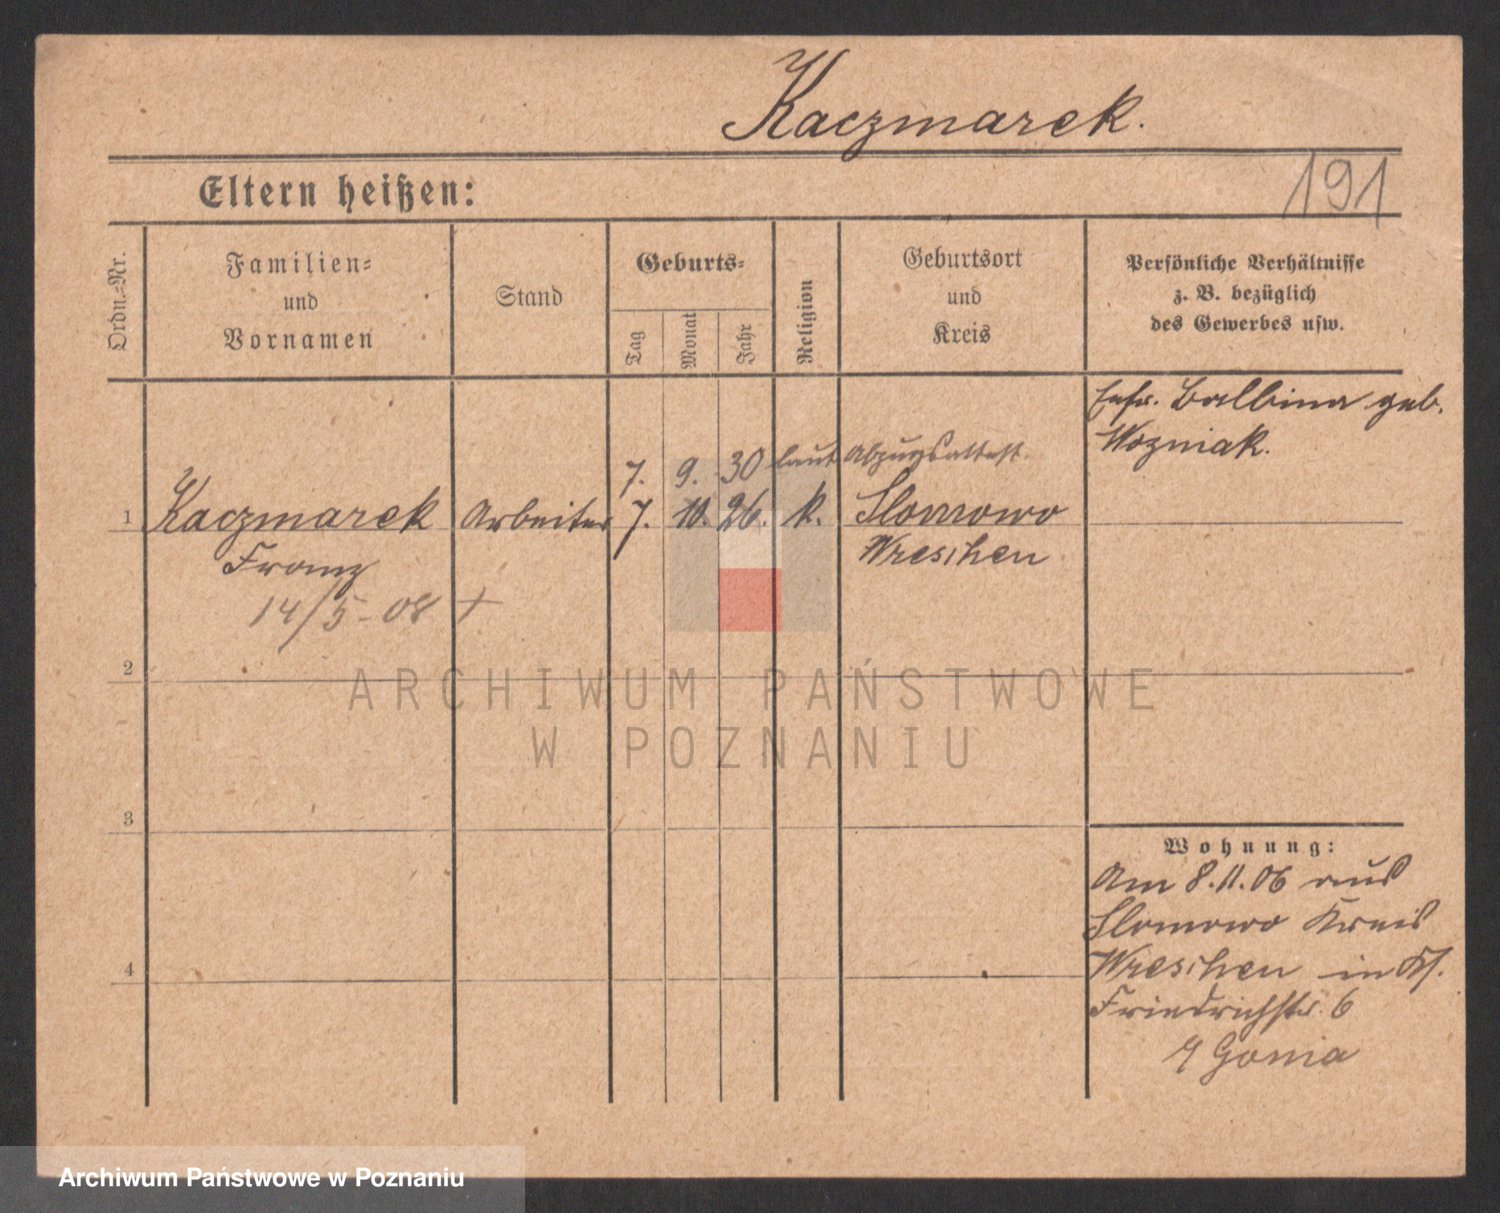 Kaczmarek.
191
Eltern heißen:
Ordn.-Nr.
Familien- und Vornamen
Stand
Geburts-
Tag
Monat
Jahr
Religion
Geburtsort und Kreis
Persönliche Verhältnisse z. B. bezüglich des Gewerbes usw.
Balbina geb.
Wozniak.
7. 9. 30 laut Abzugsattest.
1 Kaczmarek Arbeiter 7. 10. 26. k. Slomowo
Franz Wreschen
14/5-08 +
2
3
4
Wohnung:
Am 8.11.06 aus
Slomowo Kreis
Wreschen in
Friedrichstr. 6
Gonia
ARCHIWUM PAŃSTWOWE
W POZNANIU
Archiwum Państwowe w Poznaniu